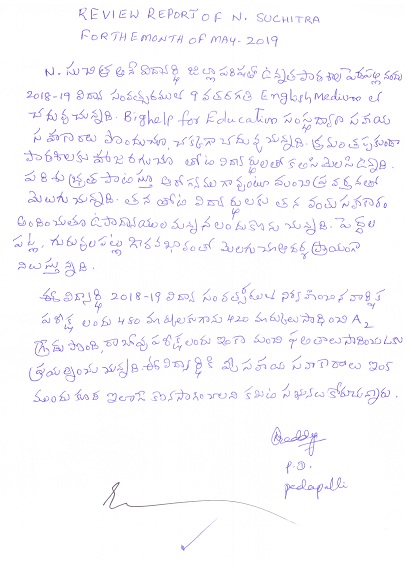 REVIEW REPORT OF N. SUCHITRA
FOR THE MONTH OF MAY-2019
N. సుచిత్ర అనే విద్యార్థి జిల్లా పరిషత్ ఉన్నత పాఠశాల పెదపల్లి నందు
2018-19 విద్యా సంవత్సరములో 9 వ తరగతి English Medium లో
చదువుచున్నది. Bighelp for Education సంస్థ ద్వారా సహాయ
సహకారాలు పొందుచూ, చక్కగా చదువుచున్నది. క్రమం తప్పకుండా
పాఠశాలకు హాజరగుచూ తోటి విద్యార్థులతో కలసి మెలసి ఉన్నది.
పరిశుభ్రత పాటిస్తూ ఆరోగ్యముగా ఉంటూ మంచి ప్రవర్తనతో
మెలుగుచున్నది. తన తోటి విద్యార్థులకు తన వంతు సహకారం
అందించుతూ ఉపాధ్యాయుల మన్ననలందుకొనుచున్నది. పెద్దల
పట్ల, గురువుల పట్ల గౌరవభావంతో మెలుగుచూ ఆదర్శ ప్రాయంగా
నిలుస్తున్నది.
ఈ విద్యార్థి 2018-19 విద్యా సంవత్సరములో నిర్వహించిన వార్షిక
పరీక్ష లందు 450 మార్కులకుగాను 420 మార్కులు సాధించి A2
గ్రేడు పొంది, రాబోవు పరీక్షలందు ఇంకా మంచి ఫలితాలు సాధించుటకు
ప్రయత్నించుచున్నది. ఈ విద్యార్థికి మీ సహాయ సహకారాలు ఇక
ముందు కూడా ఇలాగే కొనసాగించాలని కమిటీ సభ్యులు కోరుచున్నారు.
P.D.
pedapalli